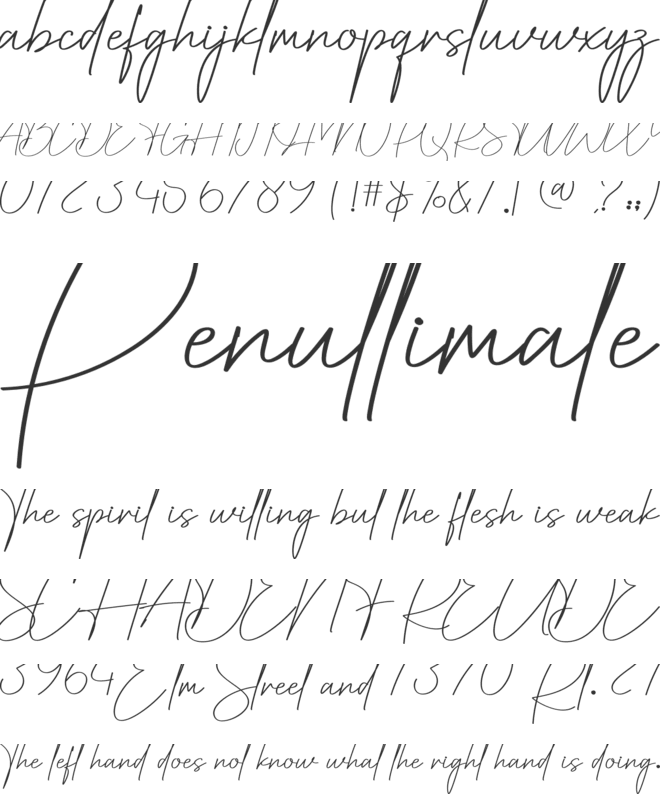 abcdefghijklmnopqrstuvwxyz
ABCDEFGHIJKLMNOPQRSTUVWXY
0123456789 (!#$%&/.| @ ?:;)
Penultimate
The spirit is willing but the flesh is weak
SCHADENFREUDE
3964 Elm Street and 1370 Rt. 21
The left hand does not know what the right hand is doing.